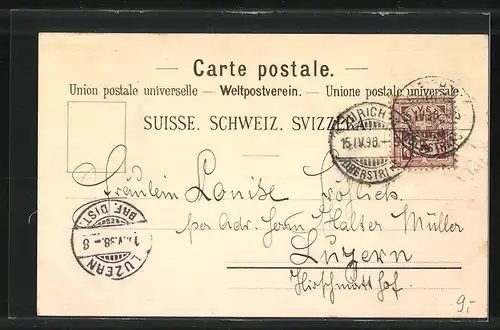 Carte postale.
Union postale universelle — Weltpostverein. — Unione postale universale
SUISSE. SCHWEIZ. SVIZZERA
ZÜRICH
15.IV.98.-5
LUZERN
BRF. DIST.
.IV.98.-8
Fräulein Louise Fröhlich.
per Adr. Herrn Walter Müller
Luzern
Hirschmatthof.
9.-